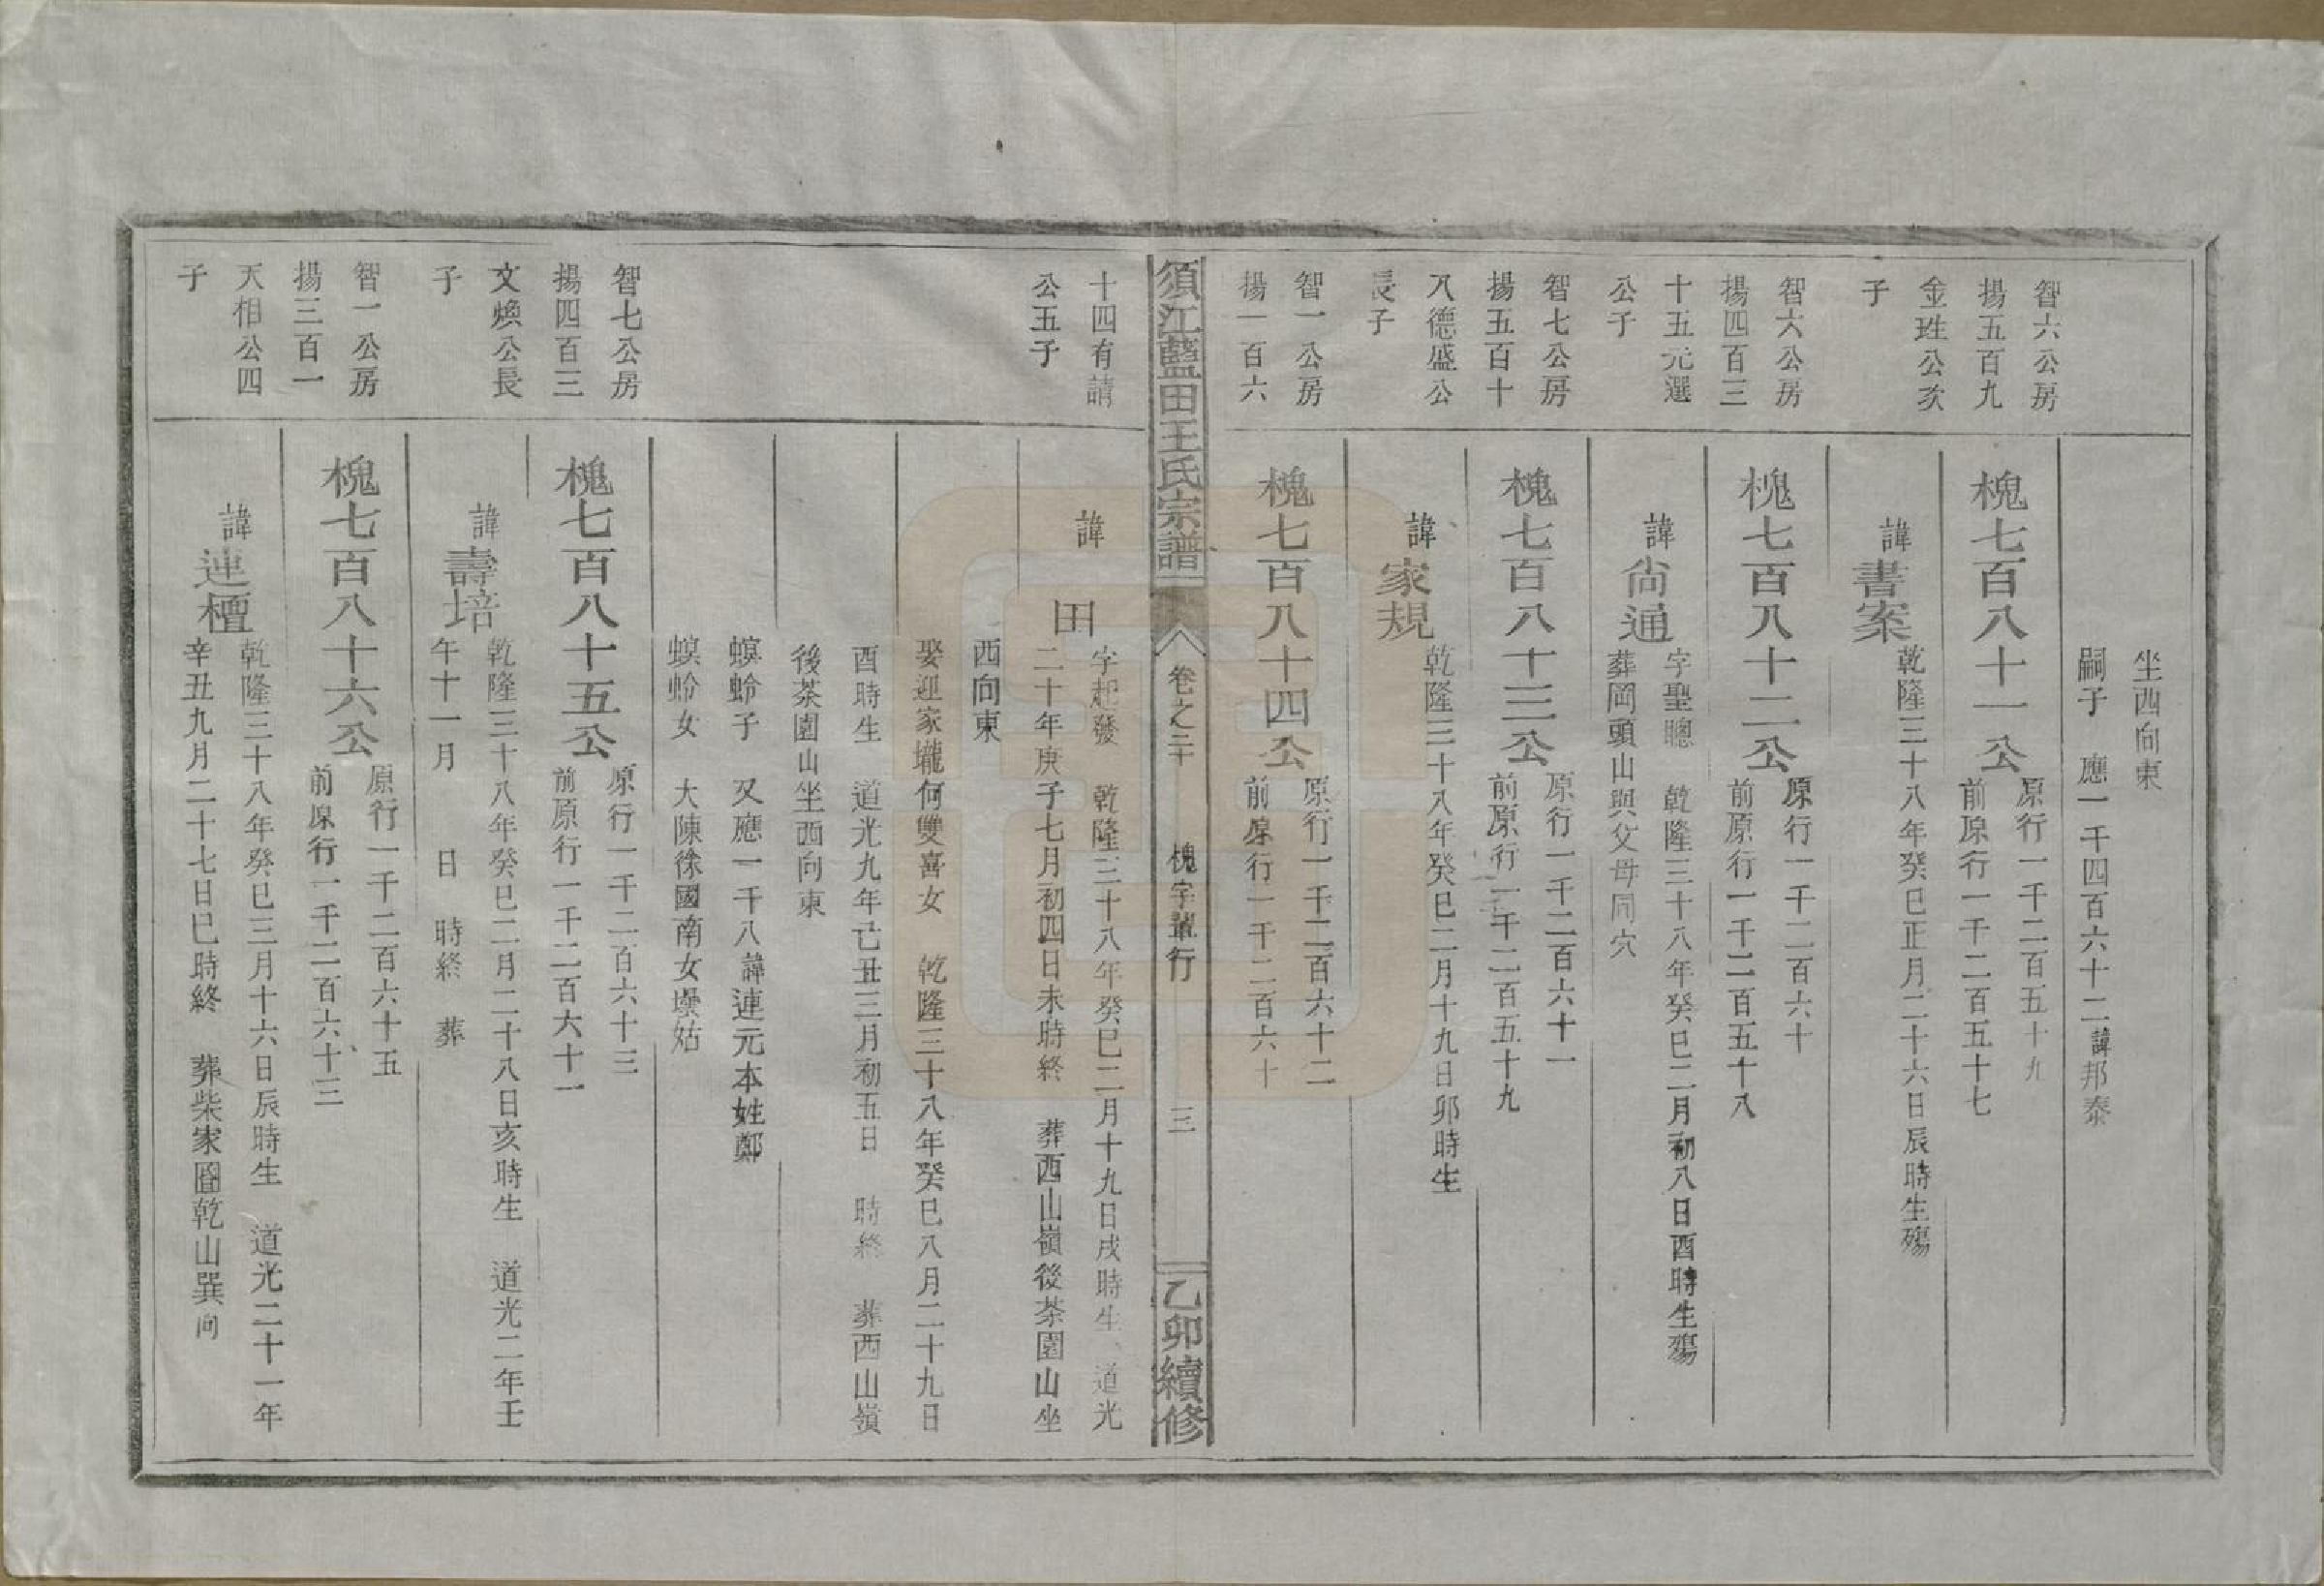 坐西向東
嗣子　應一千四百六十二諱邦泰
智六公房
揚五百九
金珄公次
子
槐七百八十一公
原行一千二百五十九
前原行一千二百五十七
諱書案
乾隆三十八年癸巳正月二十六日辰時生殤
智六公房
揚四百三
十五元選
公子
槐七百八十二公
原行一千二百六十
前原行一千二百五十八
諱尙通
字聖聰　乾隆三十八年癸巳二月初八日酉時生殤
葬岡頭山與父母同穴
智七公房
揚五百十
八德盛公
長子
槐七百八十三公
原行一千二百六十一
前原行一千二百五十九
諱家規
乾隆三十八年癸巳二月十九日卯時生
智一公房
揚一百六
槐七百八十四公
原行一千二百六十二
前原行一千二百六十
須江藍田王氏宗譜
卷之二十
槐字輩行
三
乙卯續修
十四有請
公五子
諱田
字起發　乾隆三十八年癸巳二月十九日戌時生　道光
二十年庚子七月初四日未時終　葬西山嶺後茶園山坐
西向東
娶迎家壠何雙喜女　乾隆三十八年癸巳八月二十九日
酉時生　道光九年己丑三月初五日　時終　葬西山嶺
後茶園山坐西向東
螟蛉子　又應一千八諱連元本姓鄭
螟蛉女　大陳徐國南女壜姑
智七公房
揚四百三
文煥公長
子
槐七百八十五公
原行一千二百六十三
前原行一千二百六十一
諱壽培
乾隆三十八年癸巳二月二十八日亥時生　道光二年壬
午十一月　日　時終　葬
智一公房
揚三百一
天相公四
子
槐七百八十六公
原行一千二百六十五
前原行一千二百六十三
諱連檀
乾隆三十八年癸巳三月十六日辰時生　道光二十一年
辛丑九月二十七日巳時終　葬柴家圖乾山巽向